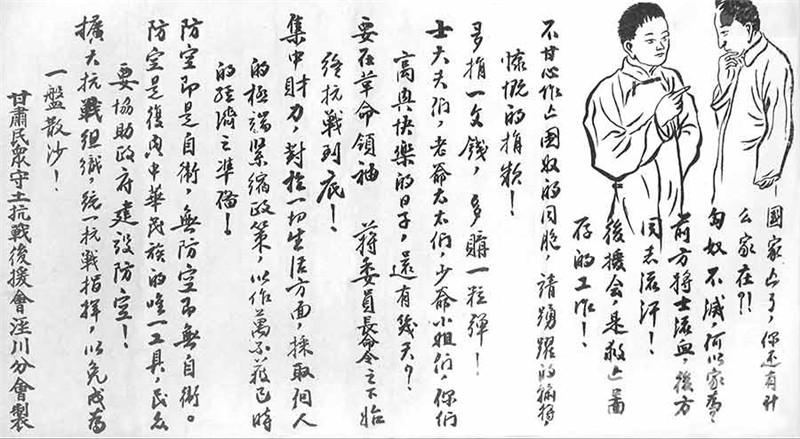 國家亡了，你還有什
么家在？！
匈奴不滅，何以家為！
前方将士流血，後方
同志流汗！
後援会是救亡圖
存的工作！
不甘心作亡國奴的同胞，請踴躍的輸将，
慷慨的捐款！
多捐一文錢，多購一粒弹！
士大夫们，老爺太太们，少爺小姐们，你们
高興快樂的日子，還有幾天？
要在革命領袖　蔣委員長命令之下始
终抗戰到底！
集中財力，對於一切生活方面，採取個人
的極端緊縮政策，以作萬不獲已時
的经濟之準備！
防空即是自衛，無防空即無自衛。
防空是復興中華民族的唯一工具，民众
要協助政府建設防空！
擴大抗戰组織，統一抗戰指揮，以免成為
一盤散沙！
甘肅民眾守土抗戰後援會涇川分會製